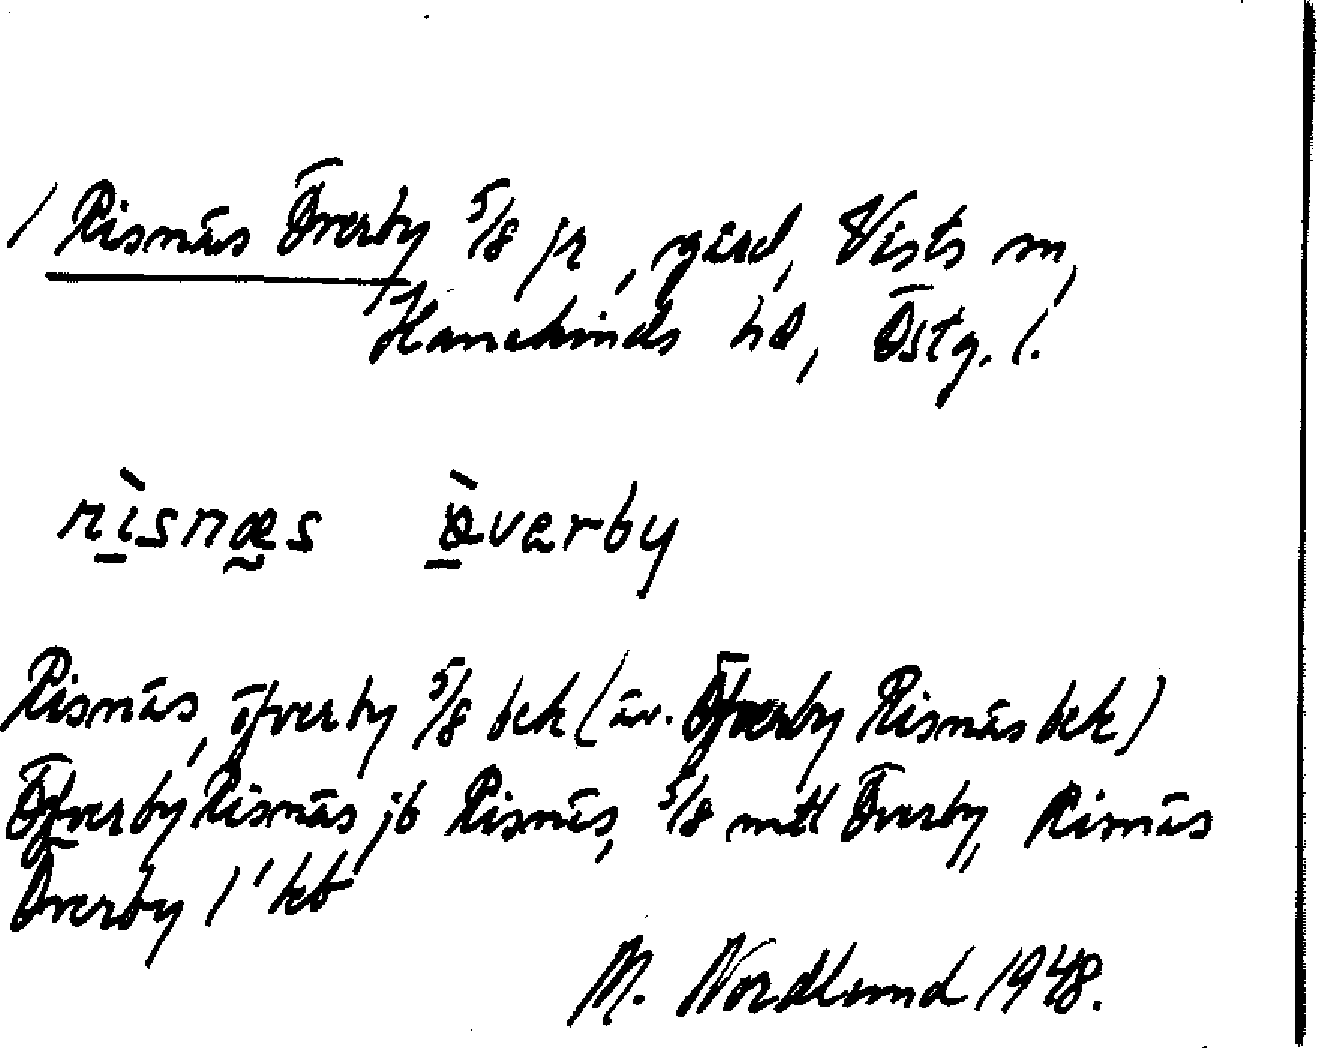 / Risnäs Överby 5/8 jr, gård, Vists sn,
Hanekinds hd, Östg. l.
rìsnæs ö̀verby
Risnäs, öfverby 5/8 bek (äv. Öfverby Risnäs bek)
Öfverby Risnäs jb Risnäs, 5/8 mtl Överby, Risnäs
Överby 1' kb
M. Nordlund 1948.